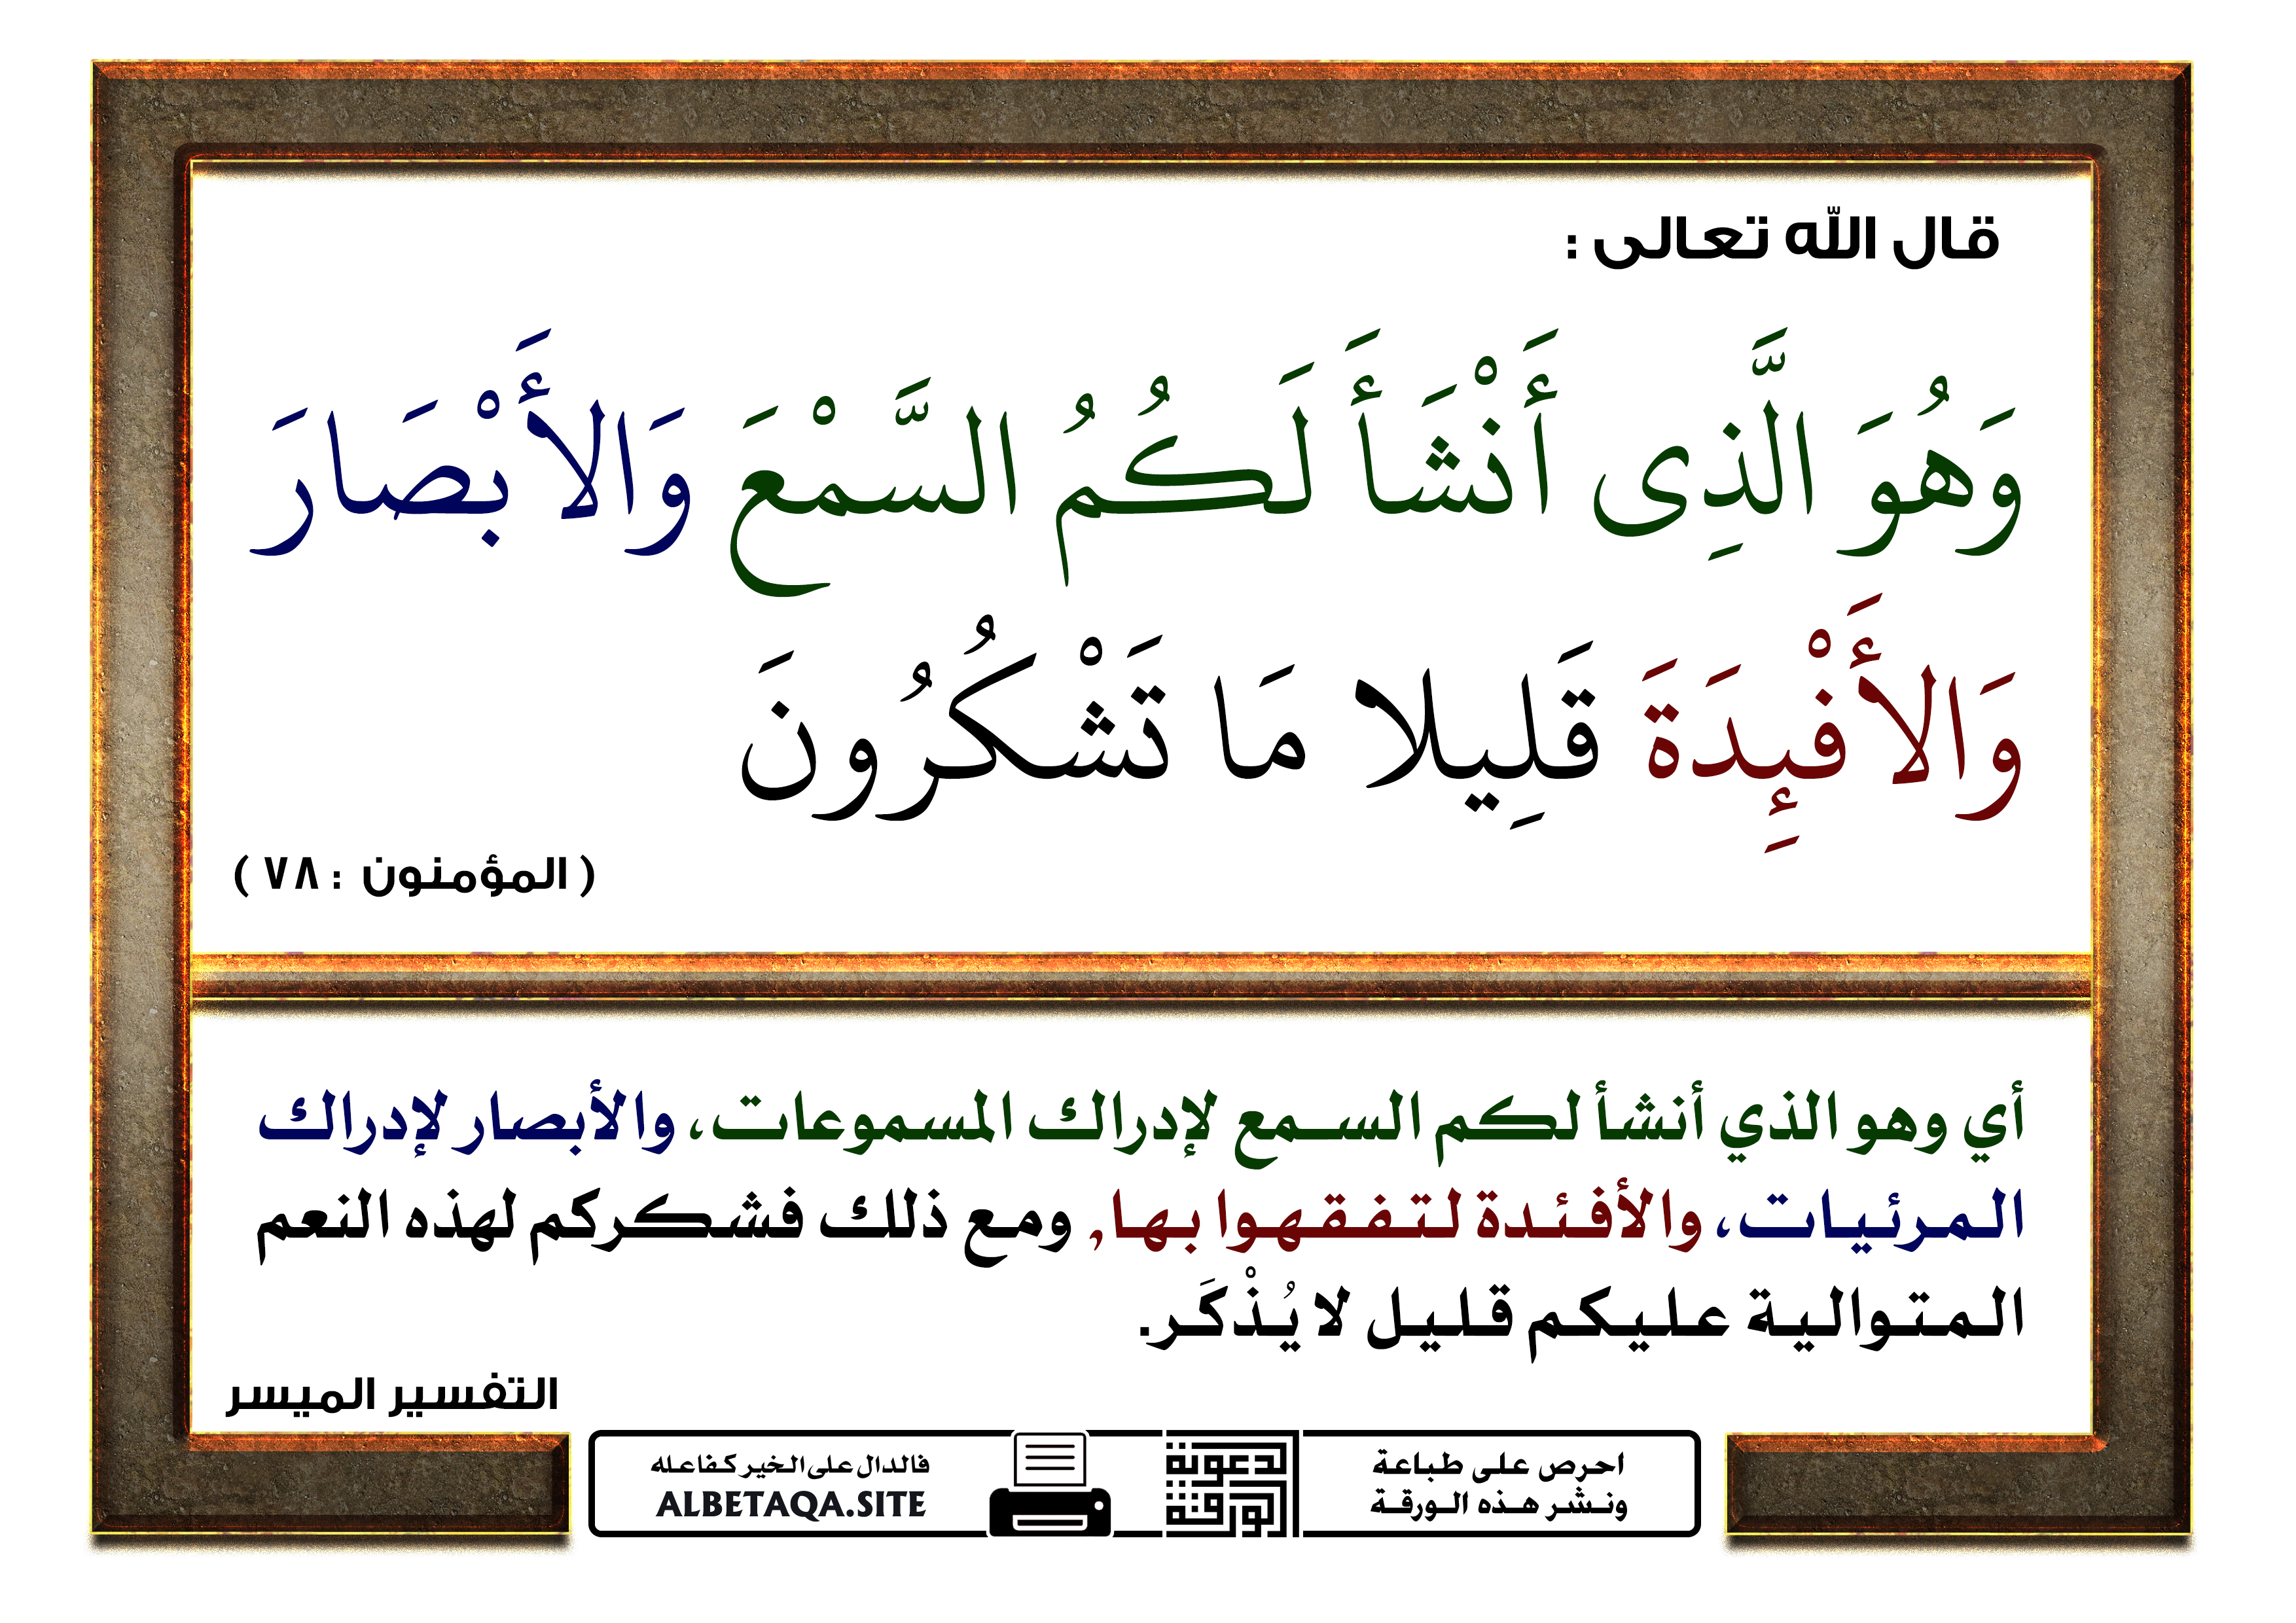 قال الله تعالى :
وَهُوَ الَّذِى أَنْشَأَ لَكُمُ السَّمْعَ وَالأَبْصَارَ
وَالأَفْئِدَةَ قَلِيلا مَا تَشْكُرُونَ
( المؤمنون : ٧٨ )
أي وهو الذي أنشأ لكم السمع لإدراك المسموعات، والأبصار لإدراك
المرئيات، والأفئدة لتفقهوا بها, ومع ذلك فشكركم لهذه النعم
المتوالية عليكم قليل لا يُذْكَر.
التفسير الميسر
احرص على طباعة
ونشر هذه الورقة
الدعوية
الورقة
فالدال على الخير كفاعله
ALBETAQA.SITE